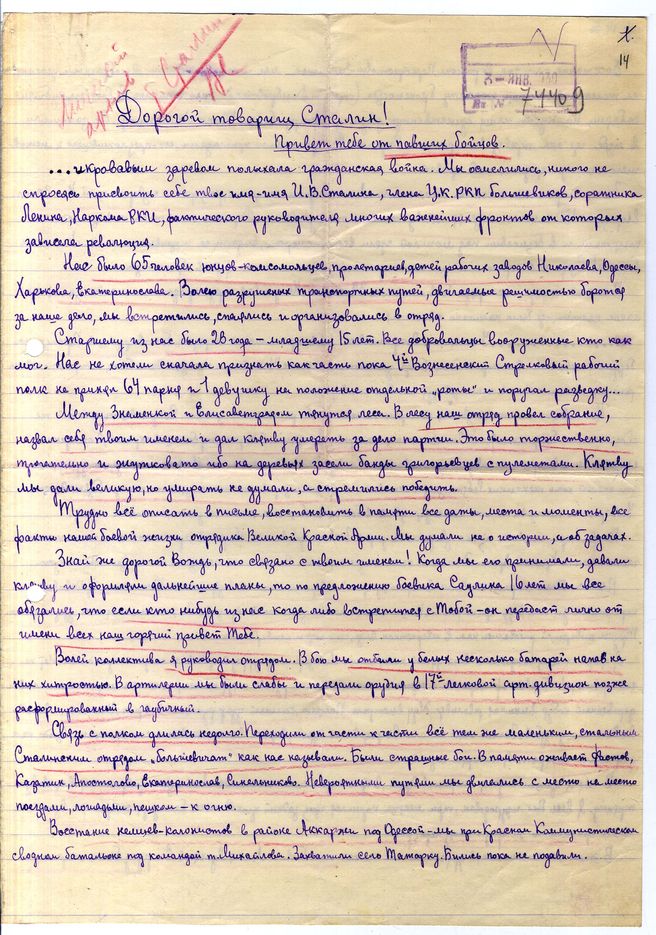 Х.
14
Личный
архив
Сталин
3 - ЯНВ. 1940
Вх №
74409
Дорогой товарищ Сталин!
Привет тебе от павших бойцов.
... и кровавым заревом полыхала гражданская война. Мы осмелились, никого не
спросясь присвоить себе твое имя - имя И.В. Сталина, члена Ц.К. РКП большевиков, соратника
Ленина, Наркома РКИ, фактического руководителя многих важнейших фронтов от которых
зависела революция.
Нас было 65 человек юнцов-комсомольцев, пролетариев, детей рабочих заводов Николаева, Одессы,
Харькова, Екатеринослава. Волею разрушеных транспортных путей, двигаемые решимостью бороться
за наше дело, мы встретились, спаялись и организовались в отряд.
Старшему из нас было 28 года - младшему 15 лет. Все добровольцы вооруженные кто как
мог. Нас не хотели сначала признать как часть пока 4й Вознесенский Стрелковый рабочий
полк не принял 64 парня и 1 девушку на положение отдельной „роты" и поручал разведку...
Между Знаменкой и Елисаветградом тянутся леса. В лесу наш отряд провел собрание,
назвал себя твоим именем и дал клятву умереть за дело партии. Это было торжественно,
трогательно и жутковато ибо на деревьях засели банды григорьевцев с пулеметами. Клятву
мы дали великую, но умирать не думали, а стремились победить.
Трудно всё описать в письме, восстановить в памяти все даты, места и моменты, все
факты нашей боевой жизни отрядика Великой Красной Армии. Мы думали не о истории, а об задачах.
Знай же дорогой Вождь, что связано с твоим именем! Когда мы его принимали, давали
клятву и оформляли дальнейшие планы, то по предложению боевика Садлина 16 лет мы все
обязались, что если кто нибудь из нас когда либо встретится с Тобой - он передаст лично от
имени всех наш горячий привет Тебе.
Волей коллектива я руководил отрядом. В бою мы отбили у белых несколько батарей напав на
них хитростью. В артилерии мы были слабы и передали орудия в 17й легковой арт. дивизион позже
расформированный в гаубичный.
Связь с полком длилась недолго. Переходили от части к части всё тем же маленьким, стальным
Сталинским отрядом, „большевичат" как нас называли. Были страшные бои. В памяти оживает Фастов,
Казатин, Апостолово, Екатеринослав, Синельниково. Невероятными путями мы двигались с место на место
поездами, лошадьми, пешком - к огню.
Восстание немцев-колонистов в районе Аккаржи под Одессой - мы при Красном Коммунистическом
сводном батальоне под командой т. Михайлова. Захватили село Татарку. Бились пока не подавили.